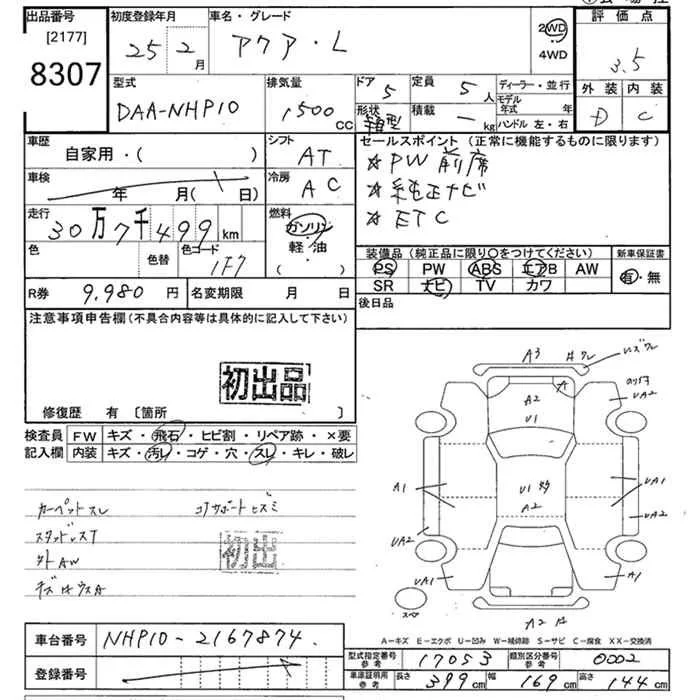 出品番号 初度登録年月 車名・グレード 評価点
[2177] 25年2月 アクア・L 2WD 3.5
8307 4WD 外装 内装
型式 排気量 ドア 定員 ディーラー・並行 D C
DAA-NHP10 1500CC 5 5人 モデル年式 年
形状 箱型 積載 ー kg ハンドル 左・右
車歴 シフト セールスポイント (正常に機能するものに限ります)
自家用・( ) AT ☆PW前席
車検 冷房 ☆純正ナビ
年 月( 日) AC ☆ETC
走行 燃料
30万7千499km ガソリン
軽・油
( )
色 色替 色コード 1F7
装備品(純正品に限り○をつけてください) 新車保証書
PS PW ABS エアB AW 有・無
SR ナビ TV カワ
R券 9,980円 名変期限 月 日 後日品
注意事項申告欄(不具合内容等は具体的に記入して下さい)
初出品
修復歴 有 〔箇所 〕
検査員 FW キズ・飛石・ヒビ割・リペア跡・×要
記入欄 内装 キズ・汚レ・コゲ・穴・スレ・キレ・破レ
カーペットスレ
スタッドレスT
外AW
初出品
A3
A
A2
U1
UA2
A1
UA1
UA2
UA2
UA1
A1
A2
スペア
A-キズ E-エクボ U-凹み W-補修跡 S-サビ C-腐食 XX-交換済
車台番号 NHP10-2167874
登録番号
型式指定番号 参考 17053 類別区分番号 参考 0002
車庫証明用 参考 長さ 399cm 幅 169cm 高さ 144cm